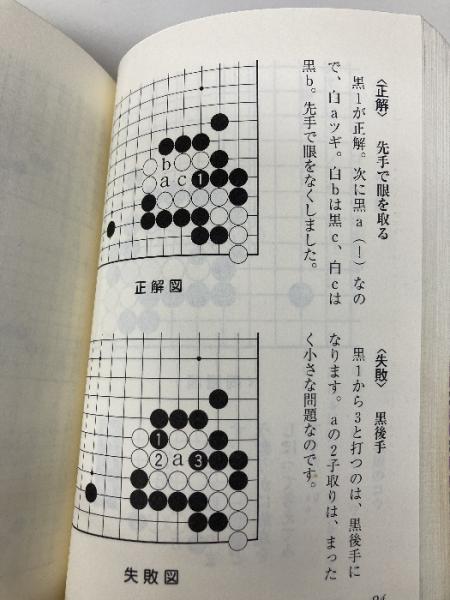 〈正解〉　先手で眼を取る
黒1が正解。次に黒a（！）なの
で、白aツギ。白bは黒c、白cは
黒b。先手で眼をなくしました。
b
a c 1
正解図
〈失敗〉　黒後手
黒1から3と打つのは、黒後手に
なります。aの2子取りは、まった
く小さな問題なのです。
1
2 a 3
失敗図